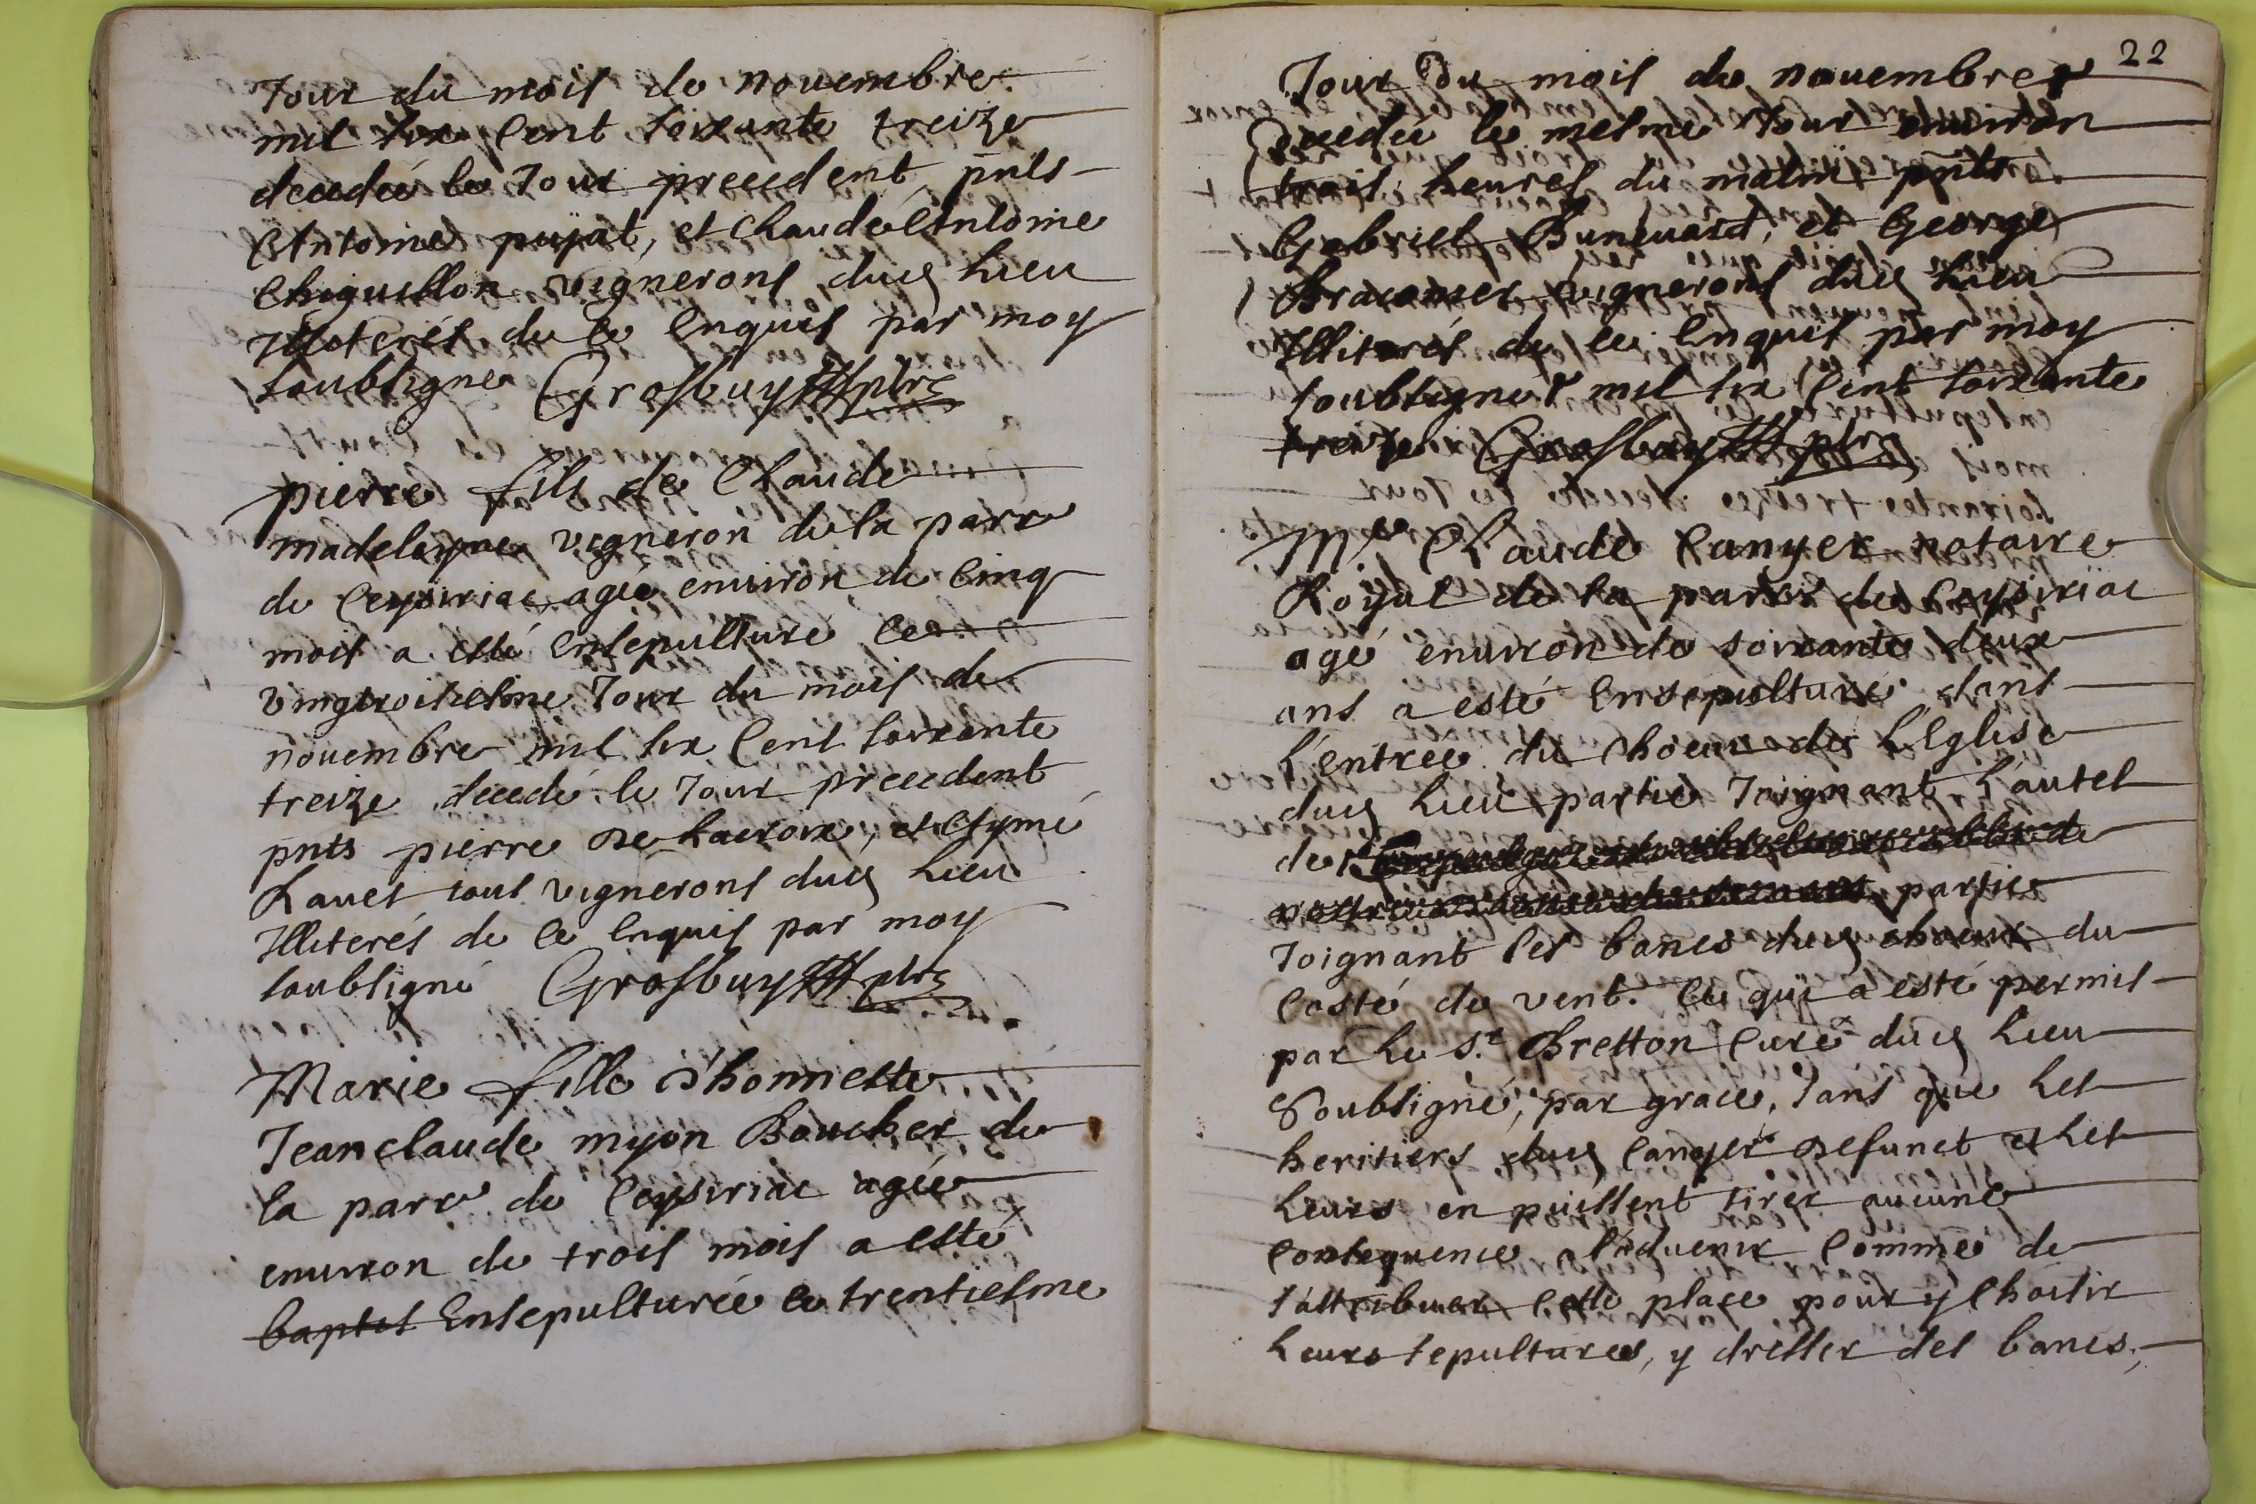 Jour du mois de nouembre
mil six Cent soixante treize
decedée le Jour precedent, pnts
Antoine pujat, et Claude Antoine
Chiquillon vignerons dud Lieu
Illiterés de ce Enquis par moy
soubsigne Grosbuy ptre
pierre fils de Claude
madelayne vigneron de la parr
de Ceysiriac, agée enuiron de Cinq
mois a esté Ensepulturé le
vingtroisiesme Jour du mois de
nouembre mil six Cent soixante
treize decedé le Jour precedent
pnts pierre De Lacroix, et Aymé
Lauet tous vignerons dud Lieu
Illiterés de ce Enquis par moy
soubsigné Grosbuy ptre
Marie fille d'honneste
Jeanclaude myon Boucher de
la parr de Ceysiriac agée
enuiron de trois mois a esté
baptes Ensepulturée le trentiesme
22
Jour Du mois de nouembre
Decedée le mesme Jour enuiron
trois heures du matin pnts
Gabriel et George
vignerons dud Lieu
Illiterés de ce Enquis par moy
soubsigné mil six Cent soixante
treize Grosbuy ptre
M.re Claude Canyer notaire
Royal de la parr de Ceysiriac
agé enuiron de soixante deux
ans a esté Ensepulturé dans
L'entree du Choeur de L'Eglise
dud Lieu partie Joignant L'autel
de
partie
Joignant les bancs dud choeur du
Costé de vent. Ce qui a esté permis
par Le S.r Bretton Curé dud Lieu
Soubsigné, par grace, sans que Les
heritiers dud Canyer Defunct et Les
Leurs en puissent tirer aucune
Consequence a l'aduenir Comme de
s'attribuer Cette place pour y Choisir
Leurs sepultures, y dresser des bancs,